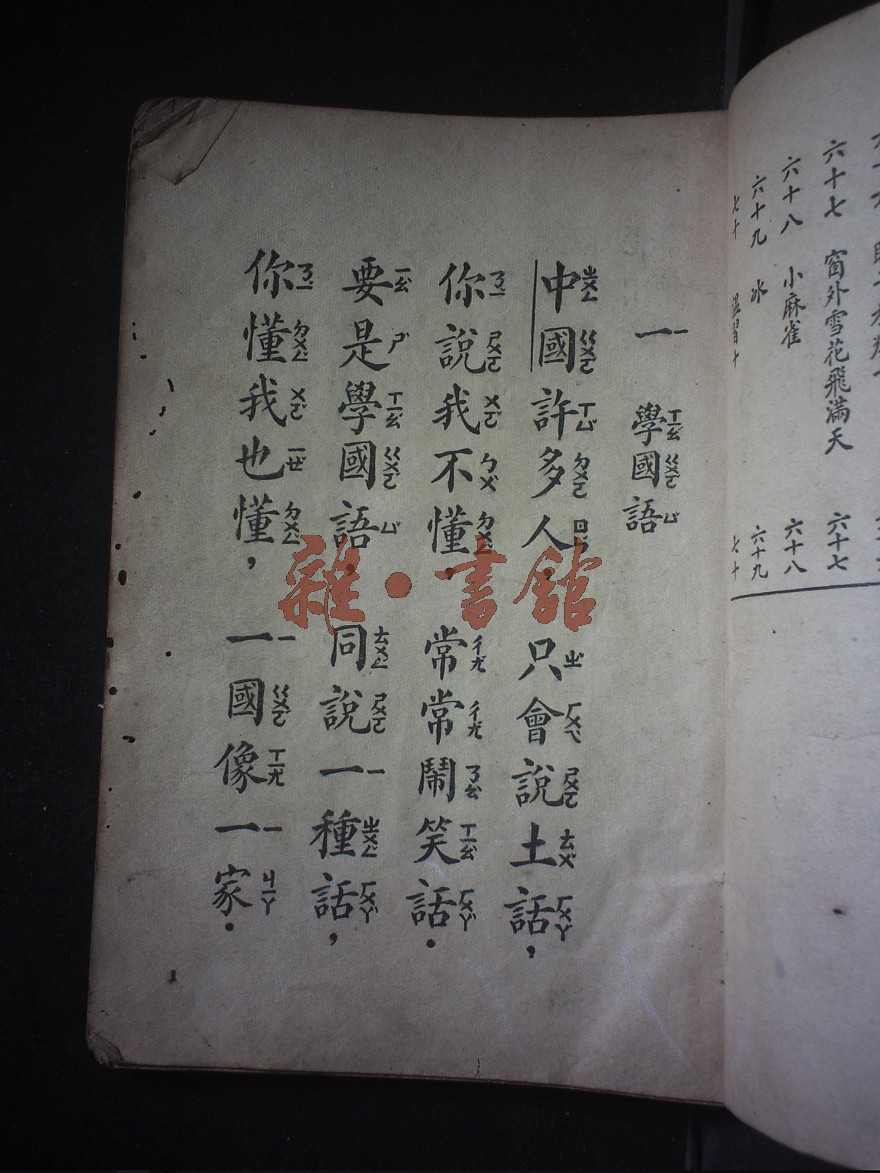 六十七 窗外雪花飛滿天 六十七
六十八 小麻雀 六十八
六十九 冰 六十九
七十 溫習十 七十
一 學國語
中國許多人，只會說土話，
你說我不懂，常常鬧笑話．
要是學國語，同說一種話，
你懂我也懂，一國像一家．
雜·書館